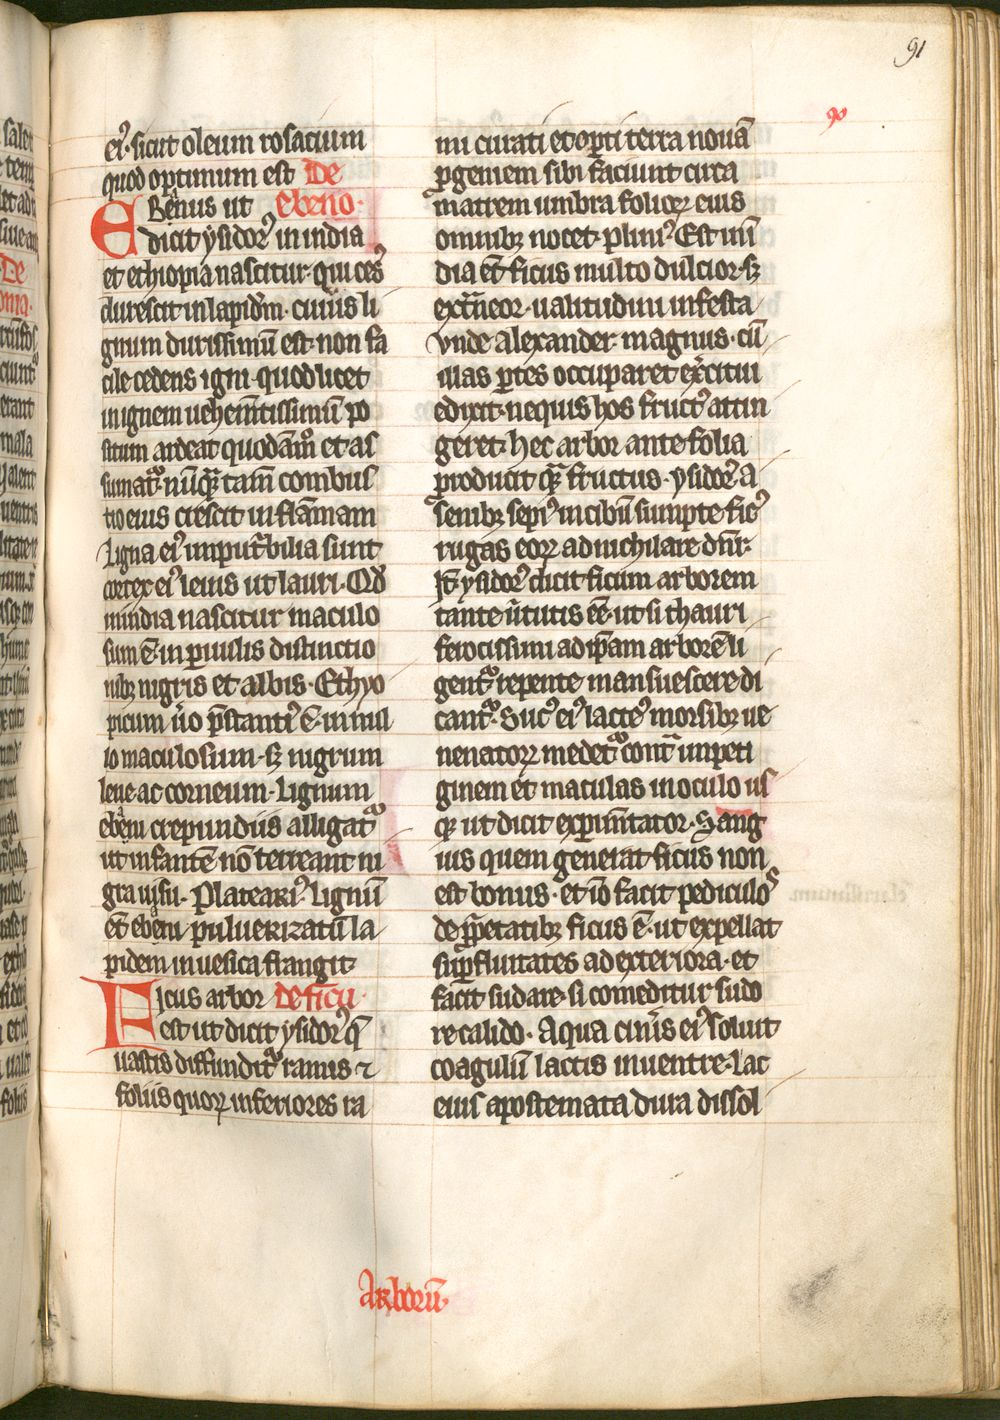 91
90
ei᾽ · sicut oleum rosacium
quod optimum est De
EBenus ut ebeno ·
dicit ysidor᾽ in india
et ethiopia nascitur · qui ces᾽
durescit in lapidē · cuius li
gnum durissimū est · non fa
cile cedens igni · quod licet
in ignem uehemētissimū po
situm ardeat quodāmō et as
sumatᵒ · nūqᷓ tam̄ combus
tio eius crescit in flāmam
Ligna ei᾽ imputͥbilia sunt
cortex ei᾽ leuis ut lauri · Qd̓
in india nascitur maculo
sum ē · in paruulis distinctio
nibꝫ nigris et albis · Ethyo
picum ūo p̄stanti᾽ ē · in nul
lo maculosum · sꝫ nigrum
leue ac corneum · Lignum
ebēni crepundiis alligatᵒ
ut infantē nō terreant ni
gra uisu · Plateari᾽ · Lignū
et̄ ebēni puluerizatū la
pidem in uesica frangit
Ficus arbor de ficu ·
est ut dicit ysidor᾽ qͣ
uastis diffunditᵒ ramis ⁊
foliis quoꝝ inferiores ra
mi curati et opti terra nouā
ꝓgeniem sibi faciunt circa
matrem umbra folioꝝ eius
omnibꝫ nocet · plini᾽ · Est in in
dia et̄ ficus multo dulcior · sꝫ
ext̄neoꝝ · ualitudini infesta
vnde alexander · magnus · cū
illas ꝑtes occuparet exͥcitui
edixit · ne quis hos fruct᾽ attin
geret · hec arbor ante folia
producit qᷓ fructus · ysidor᾽ A
senibꝫ sepi᾽ in cibū sumpte fic᾽
rugas eoꝝ adnichilare dn̄r ·
Jt̄ ysidor᾽ dicit ficum arborem
tante ūtutis ēē · ut si thauri
ferocissimi ad ip̄am arborē li
gentᵒ · repente mansuescere di
cantᵒ · Suc᾽ ei᾽ lacte᾽ morsibꝫ ue
nenatoꝝ medetᵒ cont̄ impeti
ginem et maculas in oculo us
qꝫ ut dicit experim̄tator · Sang
uis quem generat ficus non
est bonus · et iō facit pediculo᾽
de ꝓprietatibꝫ ficus ē · ut expellat
supfluitates ad exteriora · et
facit sudare · si comeditur sudo
re calido · Aqua cinͥis ei᾽ soluit
coagulū lactis in uentre · Lac
eius apostemata dura dissol
Arborū